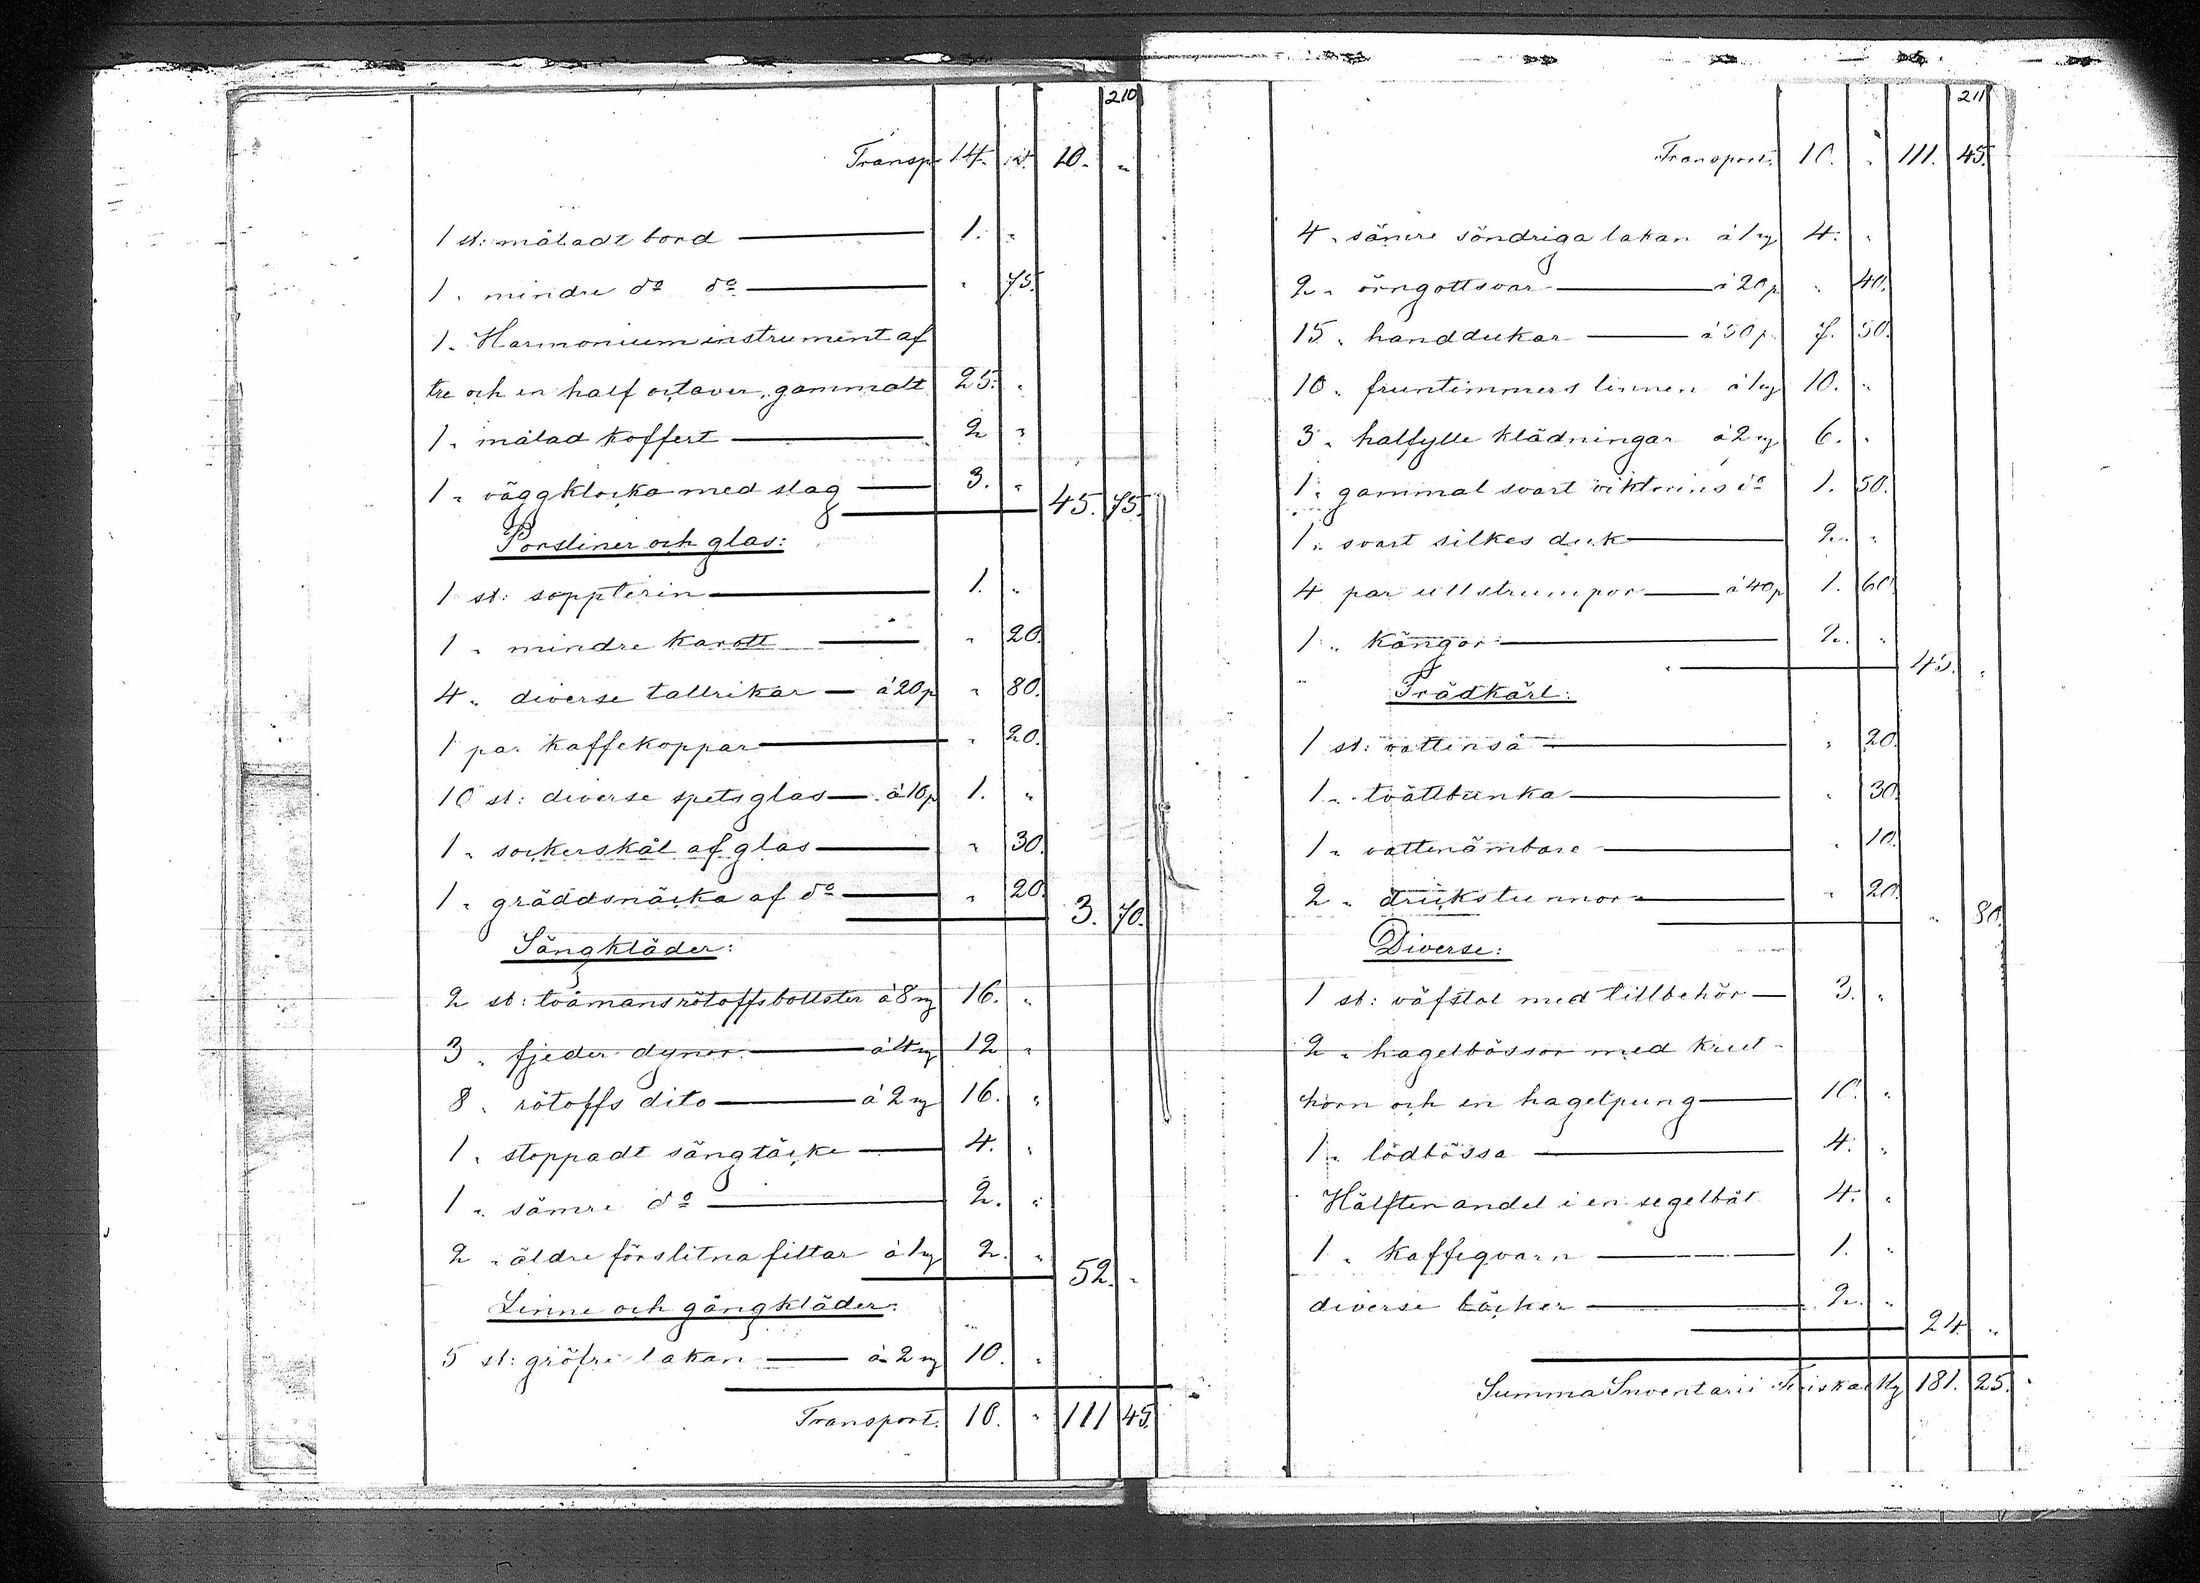 210
Transp. 14. „ 10. „
1 st: måladt bord 1. „
1 „ mindre do do „ 75.
1 „ Harmonium instrument af
tre och en half octaver, gammalt 25. „
1 „ målad koffert 2 „
1 „ väggklocka med slag 3. „ 45. 75.
Porsliner och glas:
1 st: soppterin 1. „
1 „ mindre karott „ 20.
4 „ diverse tallrikar à 20 p „ 80.
1 par kaffekoppar „ 20.
10 st: diverse spetsglas à 10 p 1. „
1 „ sockerskål af glas „ 30.
1 „ gräddsnäcka af do „ 20. 3. 70.
Sängkläder:
2 st: tvåmansrötoffsbolster à 8 mg 16. „
3 „ fjeder dynor à 4 mg 12 „
8 „ rötoffs dito à 2 mg 16. „
1 „ stoppadt sängtäcke 4. „
1 „ sämre do 2. „
2 „ äldre förslitna filtar à 1 mg 2. „ 52. „
Linne och gångkläder:
5 st: gröfre lakan à 2 mg 10. „
Transport. 10. „ 111 45.
211
Transport. 10. „ 111. 45.
4 „ sämre söndriga lakan à 1 mg 4. „
2 „ örngottsvar à 20 p „ 40.
15 „ handdukar à 50 p. 7. 50.
10 „ fruntimmers linnen à 1 mg 10. „
3 „ halfylle klädningar à 2 mg 6. „
1 „ gammal svart viktorins do 1. 50.
1 „ svart silkes duk 2. „
4 par ullstrumpor à 40 p 1. 60.
1 „ kängor 2. „ 45. „
Trädkärl:
1 st: vattenså „ 20.
1 „ tvättbunka „ 30.
1 „ vattenämbare „ 10.
2 „ drickstunnor „ 20. „ 80.
Diverse:
1 st: väfstol med tillbehör 3. „
2 „ hagelbössor med krut-
horn och en hagelpung 10. „
1 „ lodbössa 4. „
Hälften andel i en segelbåt 4. „
1 „ kaffeqvarn 1. „
diverse böcker 2. „ 24. „
Summa Inventarii Finska Mg 181. 25.